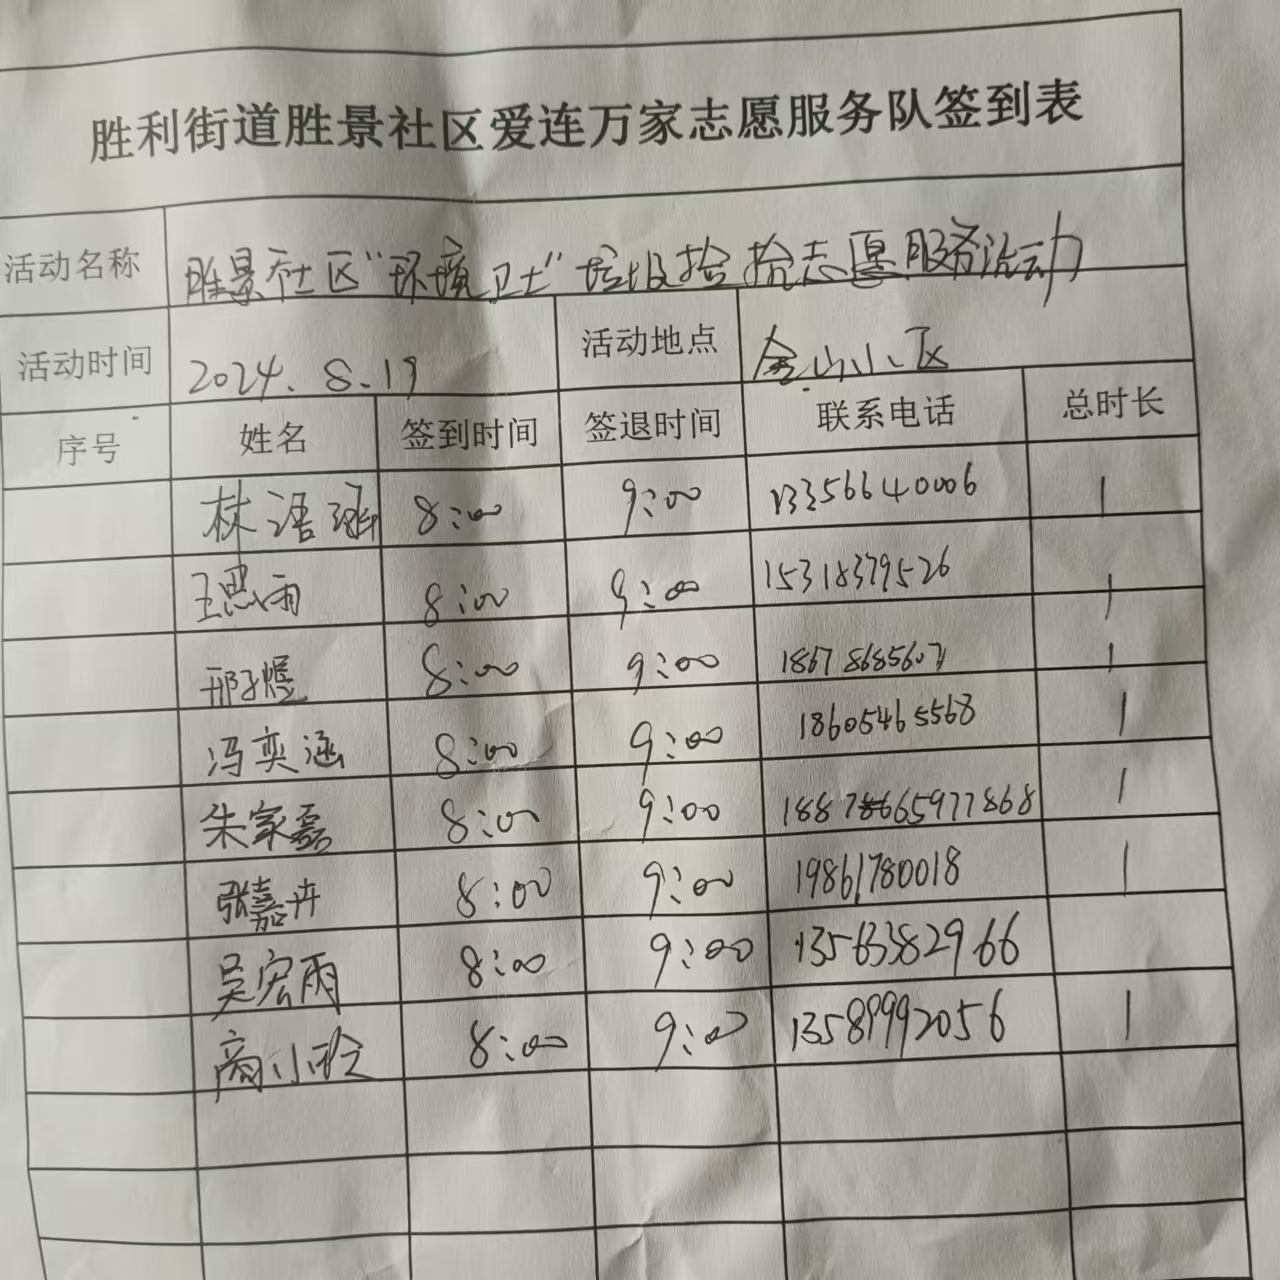 胜利街道胜景社区爱连万家志愿服务队签到表
活动名称 胜景社区“环境卫士”垃圾捡拾志愿服务活动
活动时间 2024.8.19 活动地点 金山小区
序号 姓名 签到时间 签退时间 联系电话 总时长
林语涵 8:00 9:00 13356640006 1
王思雨 8:00 9:00 15318379526 1
邢子煜 8:00 9:00 18678685607 1
冯奕涵 8:00 9:00 18605465568 1
朱家磊 8:00 9:00 1
张嘉卉 8:00 9:00 19861780018 1
吴宏雨 8:00 9:00 13563382966
商小玲 8:00 9:00 13589992056 1